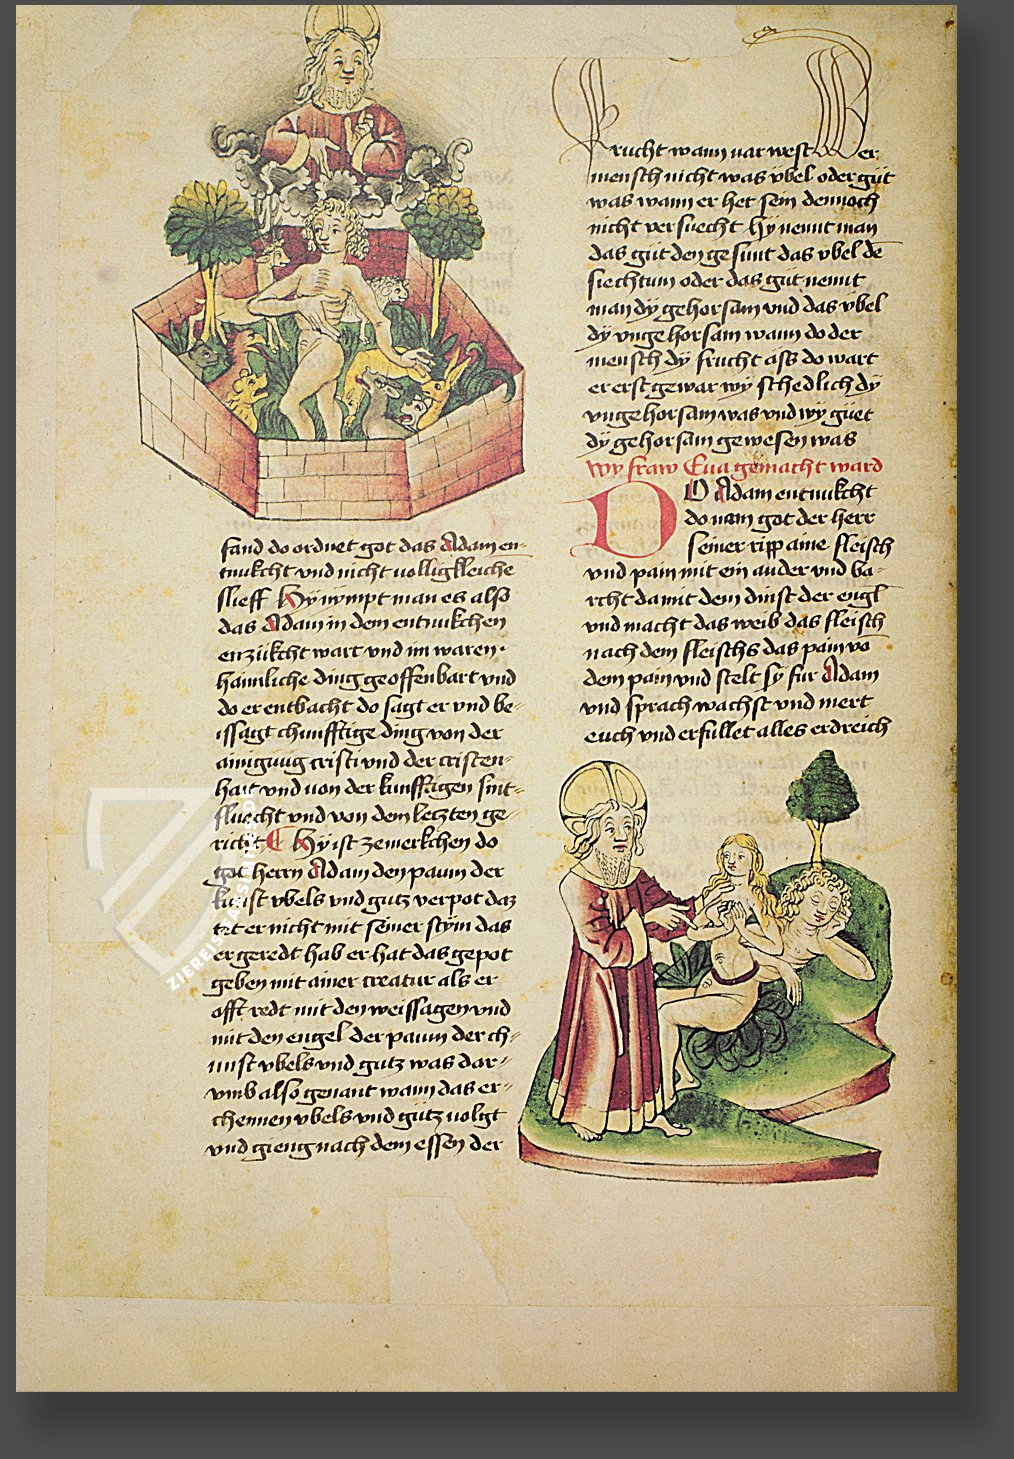 fand do ordnet got das Adam en-
tnukcht vnd nicht volligkleiche
slieff Hy nympt man es also
das Adam in dem entnukchen
enzükcht wart vnd im waren
haimliche ding geoffenbart vnd
do er entbacht do sagt er vnd be-
issagt chunfftige ding von der
ainigung cristi vnd der cristen-
hait vnd von der kunfftigen sint-
fluecht vnd von dem leczten ge-
richt Hy ist zemerkchen do
got herrn Adam den paum der
kunst vbels vnd gutz verpot daz
tet er nicht mit seiner stym das
er geredt hab er hat das gepot
geben mit ainer creatur als er
offt redt mit den weissagen vnd
mit den engel der paum der ch-
unst vbels vnd gutz was dar-
vmb also genant wann das er-
chennen vbels vnd gutz volgt
vnd gieng nach dem essen der
frucht wann uar west Der
mensch nicht was vbel oder gut
was wann er het sein dennoch
nicht versuecht hy nennt man
das gut den gesunt das vbel de
siechtum oder das gut nennt
man dy gehorsam vnd das vbel
dy vngehorsam wann do der
mensch dy frucht ass do wart
er erst gewar wy schedlich dy
vngehorsam was vnd wy guet
dy gehorsam gewesen was
wy fraw Eua gemacht ward
DO Adam entnukcht
do nam got der herr
seiner ripp aine fleisch
vnd pain mit ein ander vnd ba-
rcht da mit dem dinst der engl
vnd macht das weib das fleisch
nach dem fleischs das pain vo
dem pain vnd stelt sy fur Adam
vnd sprach wachst vnd mert
euch vnd erfullet alles erdreich